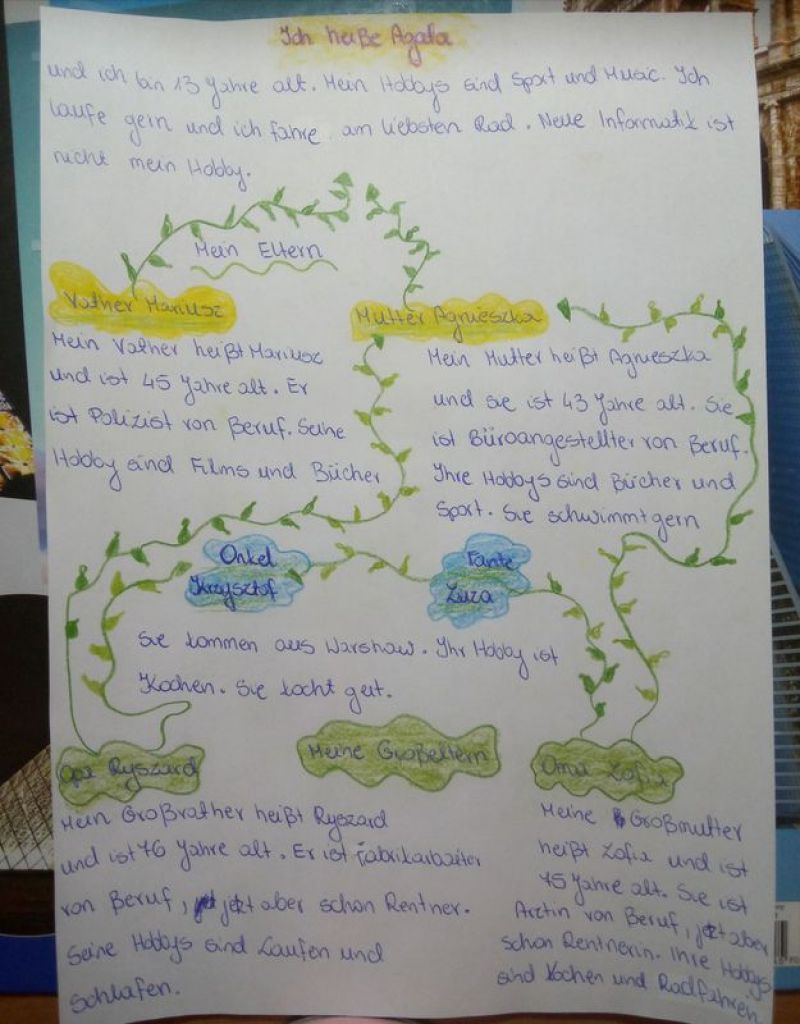 Ich heiße Agata
und ich bin 13 Jahre alt. Mein Hobbys sind Sport und Music. Ich
laufe gern und ich fahre am liebsten Rad. Neue Informatik ist
nicht mein Hobby.
Mein Eltern
Vather Mariusz
Mein Vather heißt Mariusz
und ist 45 Jahre alt. Er
ist Polizist von Beruf. Seine
Hobby sind Films und Bücher
Mutter Agnieszka
Mein Mutter heißt Agnieszka
und sie ist 43 Jahre alt. Sie
ist Büroangestellter von Beruf.
Ihre Hobbys sind Bücher und
Sport. Sie schwimmt gern
Onkel
Krzysztof
Tante
Zuza
Sie kommen aus Warshaw. Ihr Hobby ist
Kochen. Sie kocht gut.
Opa Ryszard
Meine Großeltern
Oma Zofia
Mein Großvather heißt Ryszard
und ist 76 Jahre alt. Er ist Fabrikarbaiter
von Beruf, jetzt aber schon Rentner.
Seine Hobbys sind Laufen und
Schlafen.
Meine Großmutter
heißt Zofia und ist
75 Jahre alt. Sie ist
Arztin von Beruf, jetzt aber
schon Rentnerin. Ihre Hobbys
sind Kochen und Radfahren